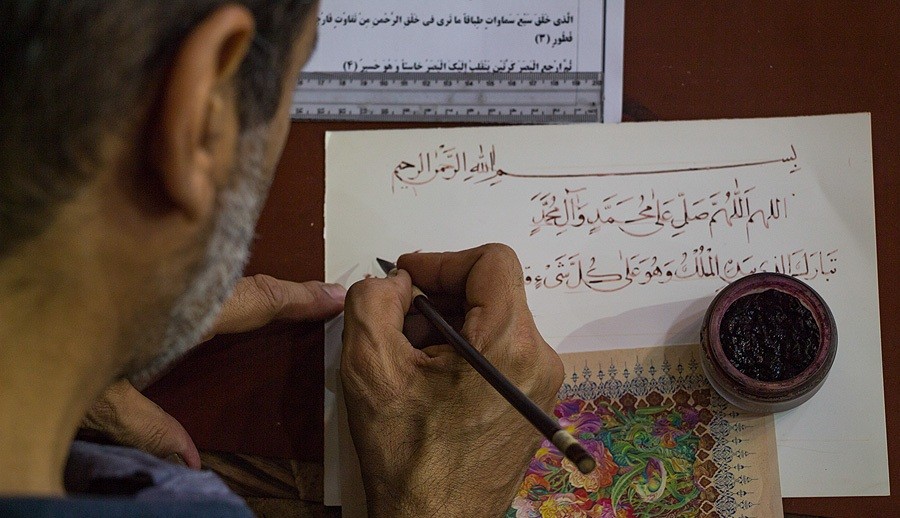 الَّذی خَلَقَ سَبْعَ سَماواتٍ طِباقاً ما تَری فی خَلْقِ الرَّحْمنِ مِنْ تَفاوُتٍ فَارْجِعِ
فُطُورٍ (۳)
ثُمَّ ارْجِعِ الْبَصَرَ كَرَّتَیْنِ یَنْقَلِبْ إِلَیْكَ الْبَصَرُ خاسِئاً وَ هُوَ حَسیرٌ (۴)
بِسمِ اللهِ الرَّحْمٰنِ الرَّحیمِ
اللهم اَللّٰهُمَّ صَلِّ عَلیٰ مُحَمَّدٍ وَ آلِ مُحَمَّدٍ
تَبَارَكَ الَّذی بِیَدِهِ الْمُلْكُ وَ هُوَ عَلیٰ كُلِّ شَیْءٍ